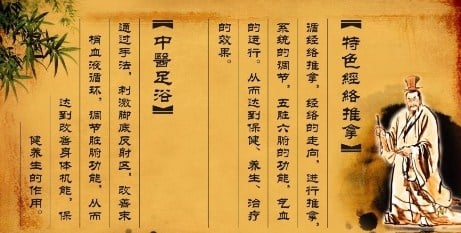 【特色經絡推拿】
循经络推拿，经络的走向，进行推拿，
系统的调节，五脏六腑的功能，气血
的运行。从而达到保健、养生、治疗
的效果。
【中醫足浴】
通过手法，刺激脚底反射区，改善末
梢血液循环，调节脏腑功能，从而
达到改善身体机能，保
健养生的作用。